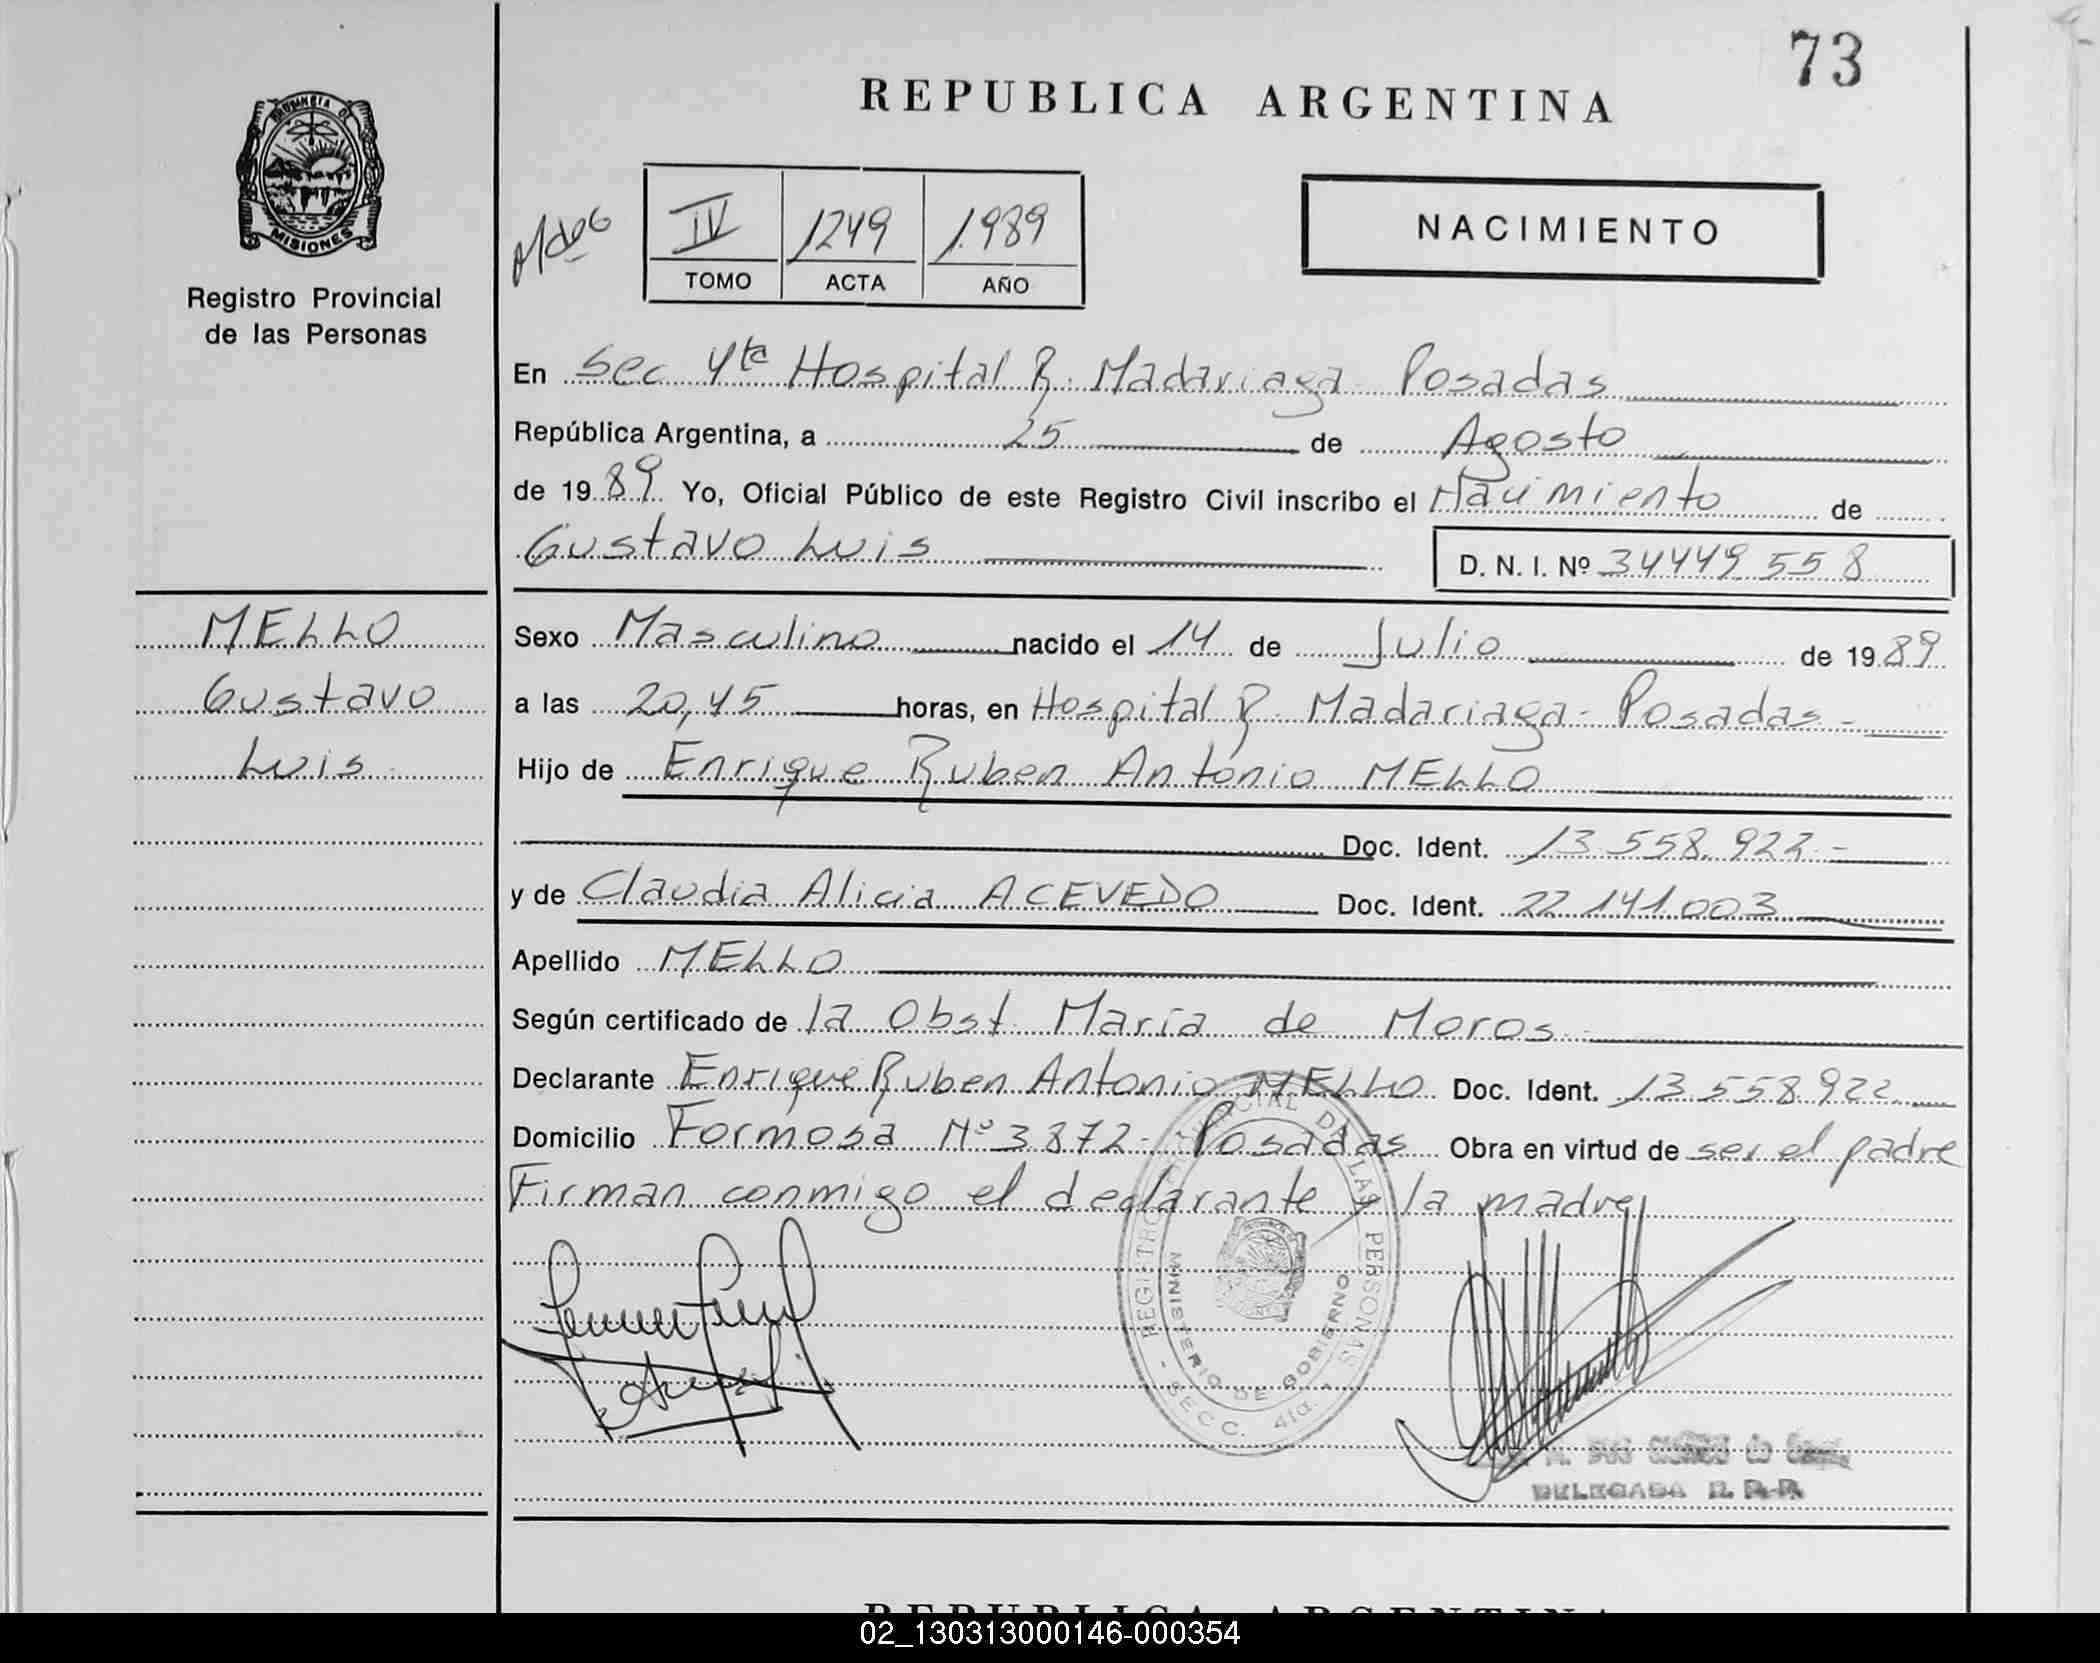 73
REPUBLICA ARGENTINA
PROVINCIA DE
MISIONES
Registro Provincial
de las Personas
IV 1249 1989
TOMO ACTA AÑO
NACIMIENTO
En Sec 4ta Hospital R. Madariaga Posadas
República Argentina, a 25 de Agosto
de 1989 Yo, Oficial Público de este Registro Civil inscribo el Nacimiento de
Gustavo Luis
D. N. I. Nº 34449558
MELLO
Gustavo
Luis
Sexo Masculino nacido el 14 de Julio de 1989
a las 20,45 horas, en Hospital R. Madariaga - Posadas -
Hijo de Enrique Ruben Antonio MELLO
Doc. Ident. 13.558.922 -
y de Claudia Alicia ACEVEDO Doc. Ident. 22.141.003
Apellido MELLO
Según certificado de la Obst. María de Moros
Declarante Enrique Ruben Antonio MELLO Doc. Ident. 13.558.922
Domicilio Formosa Nº 3872 - Posadas Obra en virtud de ser el padre
Firman conmigo el declarante y la madre
REGISTRO PROVINCIAL DE LAS PERSONAS
MINISTERIO DE GOBIERNO
- SECC. 4ta.
DELEGADA R. P. P.
REPUBLICA ARGENTINA
02_130313000146-000354